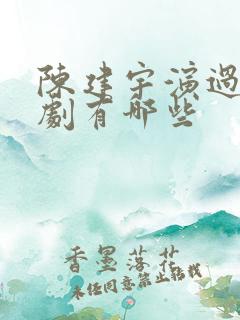 陳建宇演過
劇有哪些
香墨落花
未經同意禁止轉載